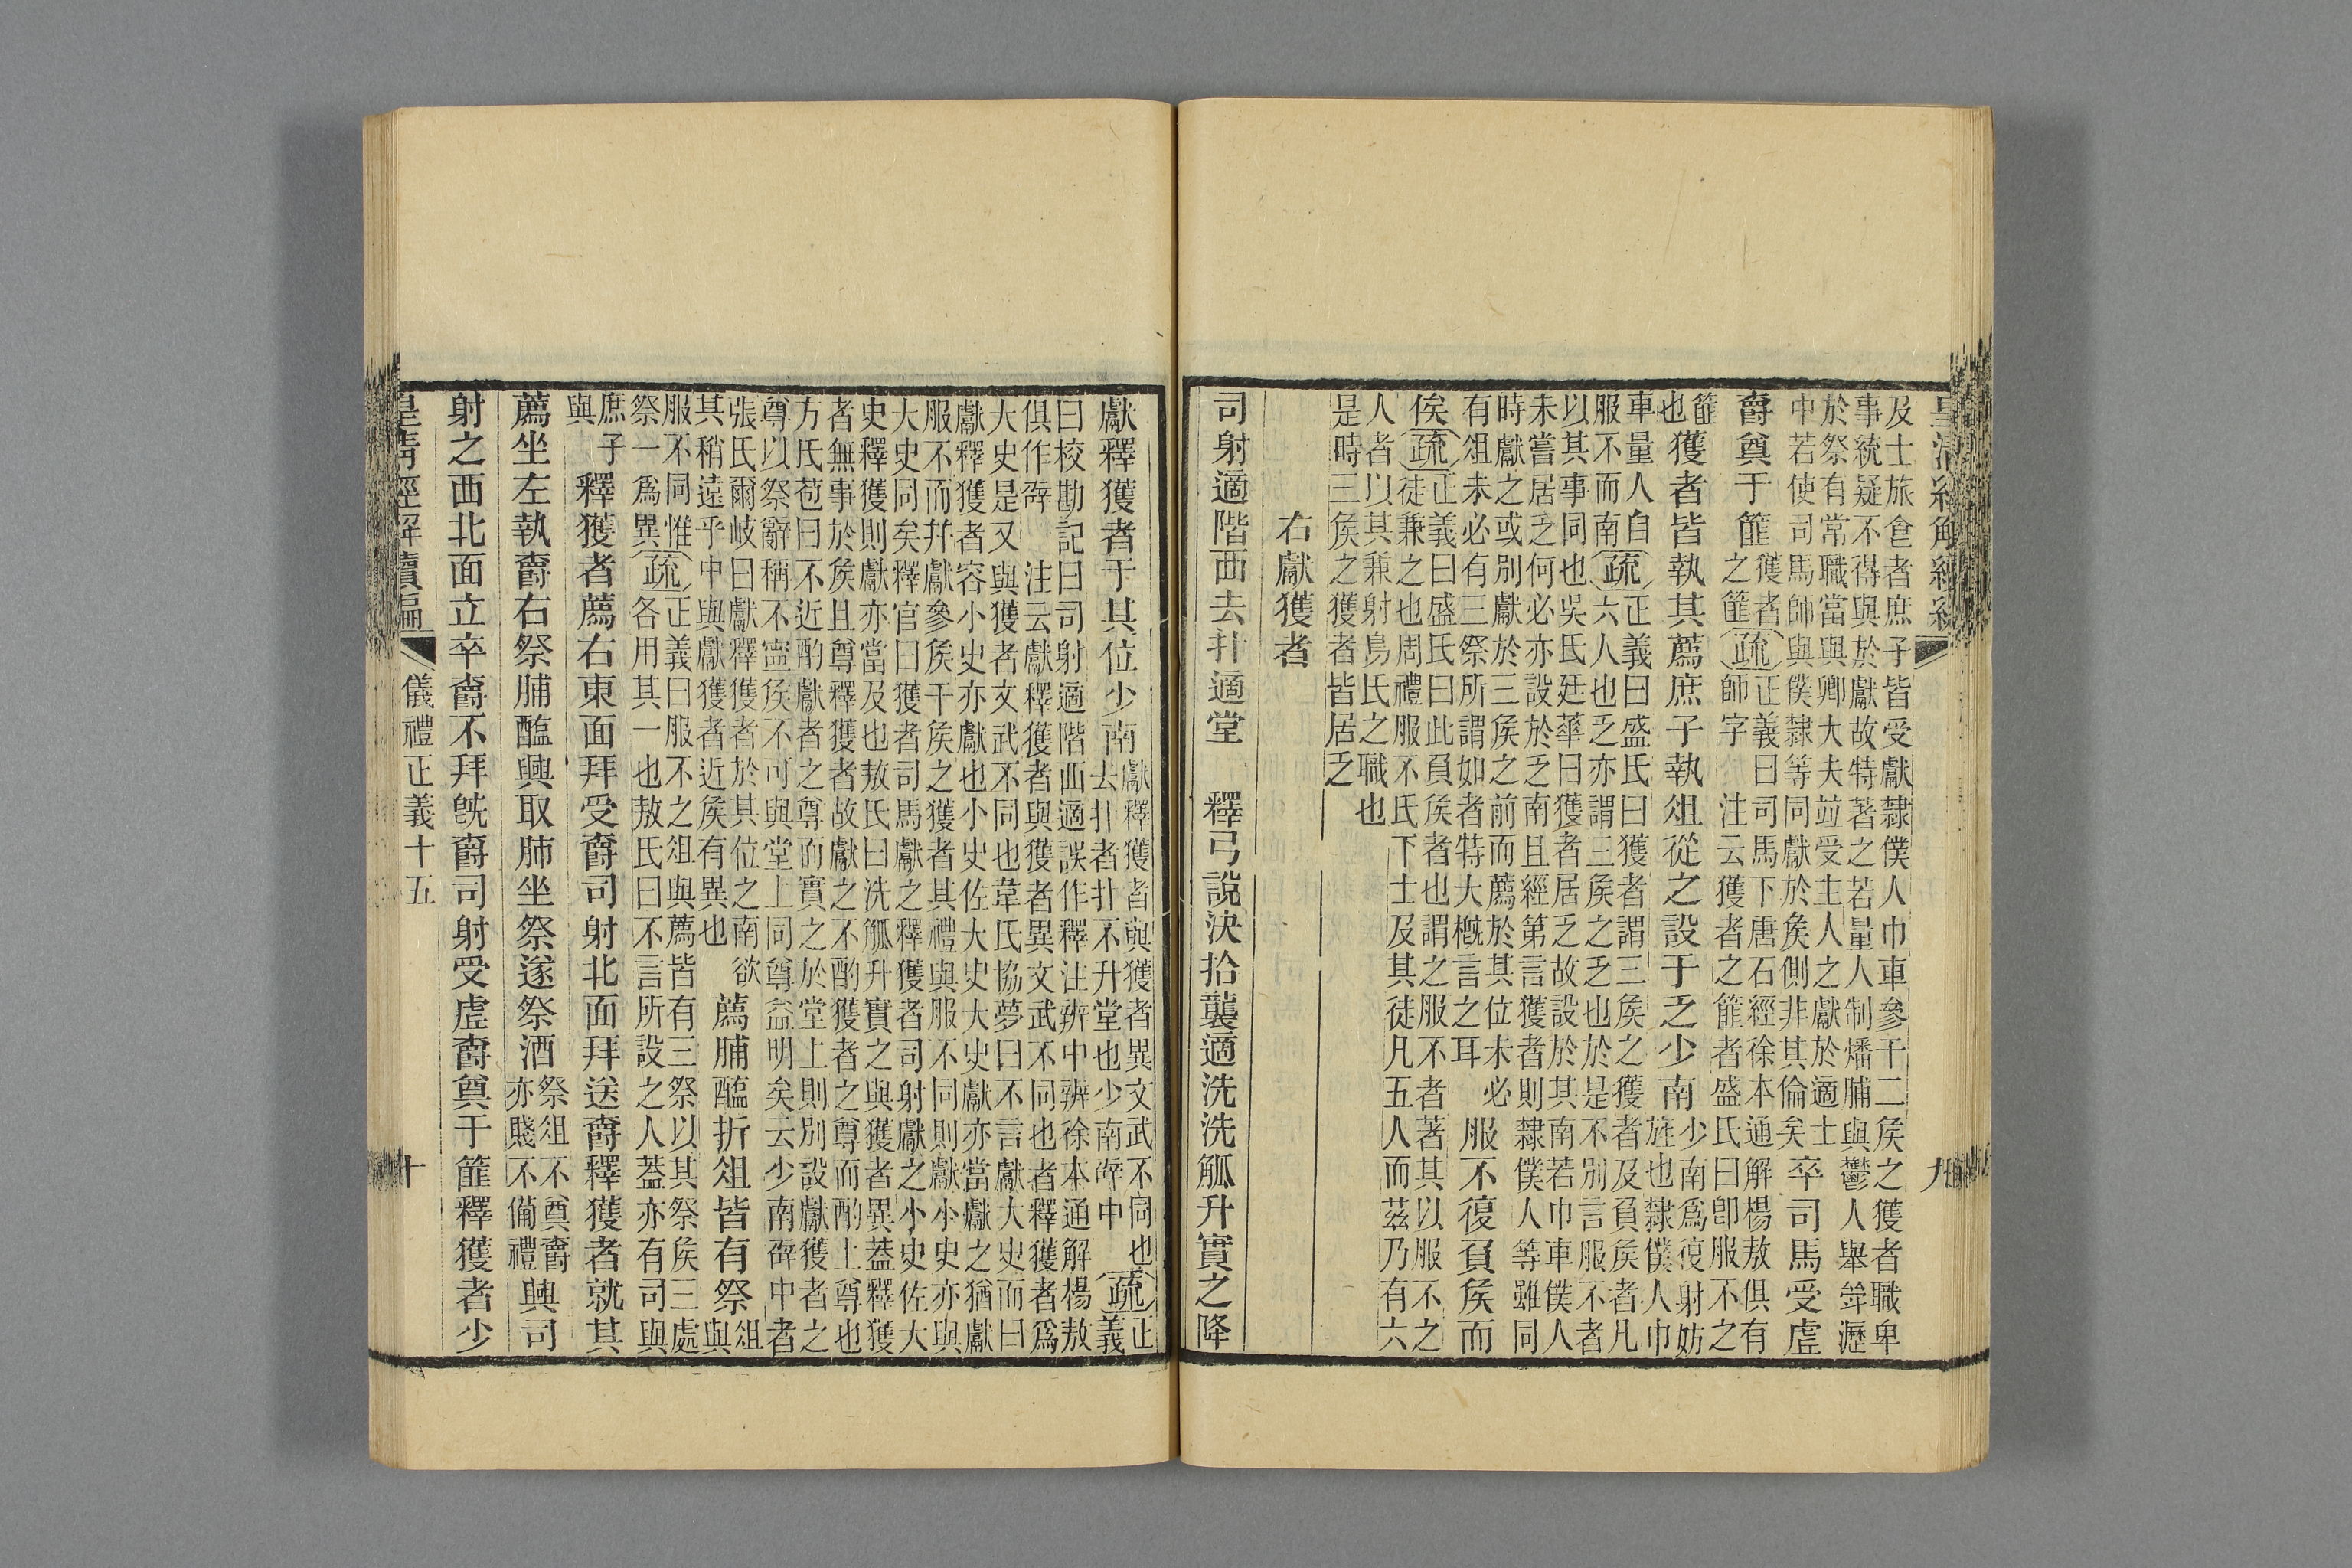 皇清經解續編 九
及士旅食者庶子皆受獻隸僕人巾車參干二侯之獲者職卑
事統疑不得與於獻故特著之若量人制燔脯與鬱人舉斝瀝
於祭有常職當與卿大夫竝受主人之獻於適士
中若使司馬師與僕隸等同獻於侯側非其倫矣
卒司馬受虛
爵奠于篚
獲者
之篚
疏
正義曰司馬下唐石經徐本通解楊敖俱有
師字　注云獲者之篚者盛氏曰卽服不之
篚
也
獲者皆執其薦庶子執俎從之設于乏少南
少南爲復射妨
旌也隸僕人巾
車量人自
服不而南
疏
正義曰盛氏曰獲者謂三侯之獲者及負侯者凡
六人也乏亦謂三侯之乏也於是不別言服不者
以其事同也吳氏廷華曰獲者居乏故設於其南若巾車僕人
未嘗居乏何必亦設於乏南且經第言獲者則隸僕人等雖同
時獻之或別獻於三侯之前而薦於其位未必
有俎未必有三祭所謂如者特大槪言之耳
服不復負侯而
俟
疏
正義曰盛氏曰此負侯者也謂之服不者著其以服不之
徒兼之也周禮服不氏下士及其徒凡五人而茲乃有六
人者以其兼射鳥氏之職也
是時三侯之獲者皆居乏
右獻獲者
司射適階西去扑適堂　釋弓說決拾襲適洗洗觚升實之降
獻釋獲者于其位少南
獻釋獲者與獲者異文武不同也
去扑者扑不升堂也少南辟中
疏
正
義
曰校勘記曰司射適階西適誤作釋注辨中辨徐本通解楊敖
俱作辟　注云獻釋獲者與獲者異文武不同也者釋獲者爲
大史是又與獲者文武不同也韋氏協夢曰不言獻大史而曰
獻釋獲者容小史亦獻也小史佐大史大史獻亦當獻之猶獻
服不而幷獻參侯干侯之獲者其禮與服不同則獻小史亦與
大史同矣釋官曰獲者司馬獻之釋獲者司射獻之小史佐大
史釋獲則獻亦當及也敖氏曰洗觚升實之與獲者異葢釋獲
者無事於侯且尊釋獲者故獻之不酌獲者之尊而酌上尊也
方氏苞曰不近酌獻者之尊而實之於堂上則別設獻獲者之
尊以祭辭稱不寧侯不可與堂上同尊益明矣云少南辟中者
張氏爾岐曰獻釋獲者於其位之南欲
其稍遠乎中與獻獲者近侯有異也
薦脯醢折俎皆有祭
俎
與
服不同惟
祭一爲異
疏
正義曰服不之俎與薦皆有三祭以其祭侯三處
各用其一也敖氏曰不言所設之人葢亦有司與
庶子
與
釋獲者薦右東面拜受爵司射北面拜送爵釋獲者就其
薦坐左執爵右祭脯醢興取肺坐祭遂祭酒
祭俎不奠爵
亦賤不備禮
興司
射之西北面立卒爵不拜旣爵司射受虛爵奠于篚釋獲者少
皇清經解續編 儀禮正義十五 十